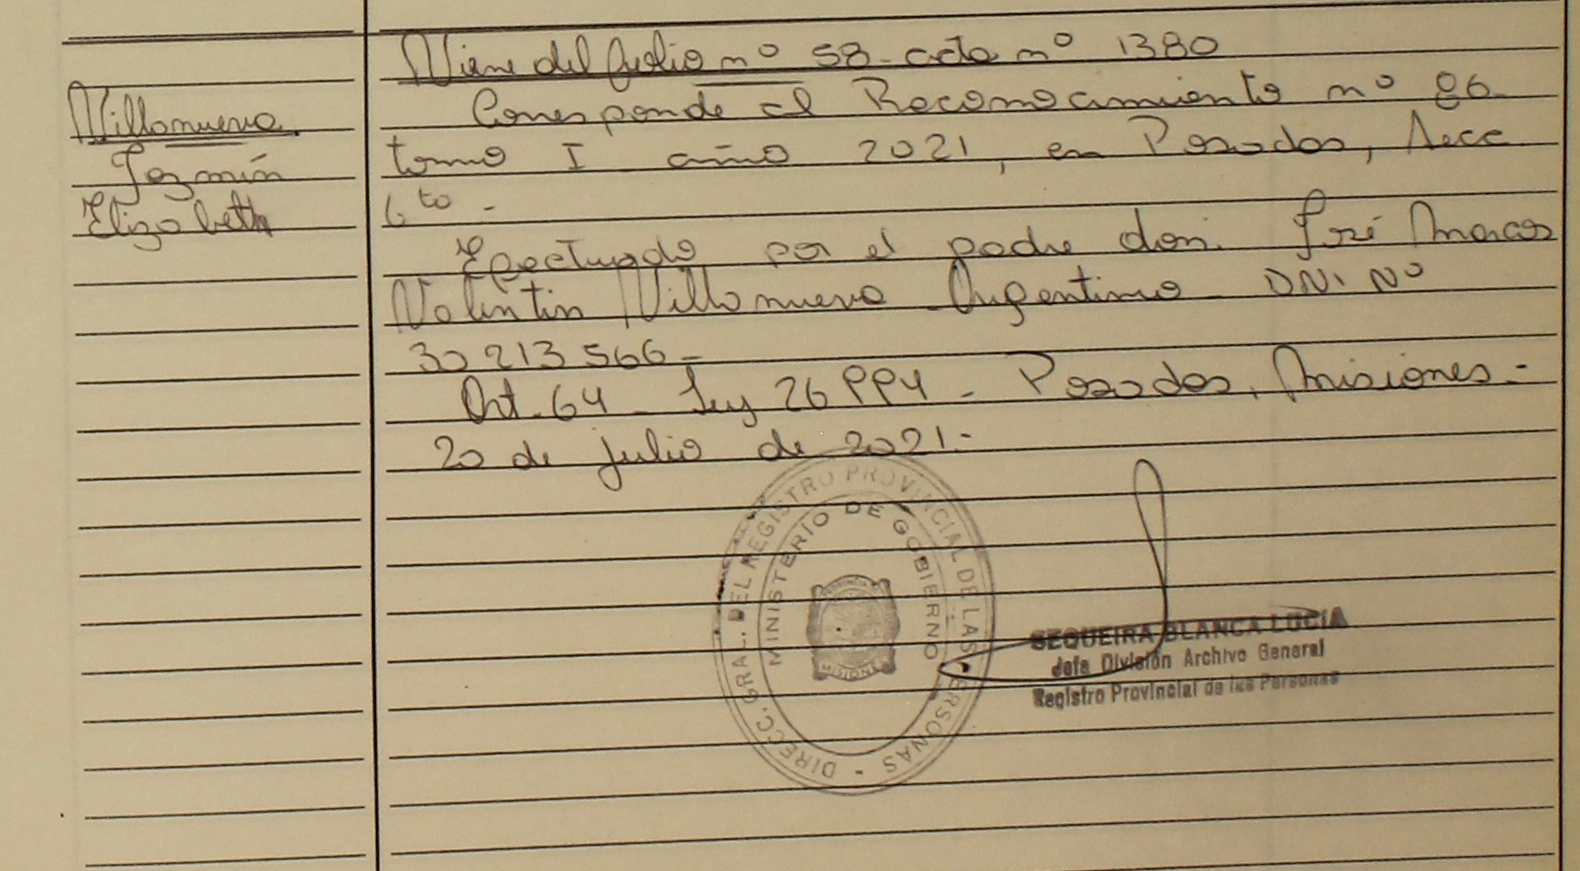 Viene del folio nº 58 - acta nº 1380
Villanueva
Jazmín
Elizabeth
Corresponde al Reconocimiento nº 86
tomo I año 2021, en Posadas, Secc
6to -
Efectuado por el padre don. José Marcos
Valentin Villanueva - Argentino - DNI Nº
30 213 566 -
Art. 64 - Ley 26 994 - Posadas, Misiones -
20 de julio de 2021 -
DIRECC. GRAL. DEL REGISTRO PROVINCIAL DE LAS PERSONAS -
MINISTERIO DE GOBIERNO
PROVINCIA
MISIONES
SEQUEIRA BLANCA LUCIA
Jefa División Archivo General
Registro Provincial de las Personas